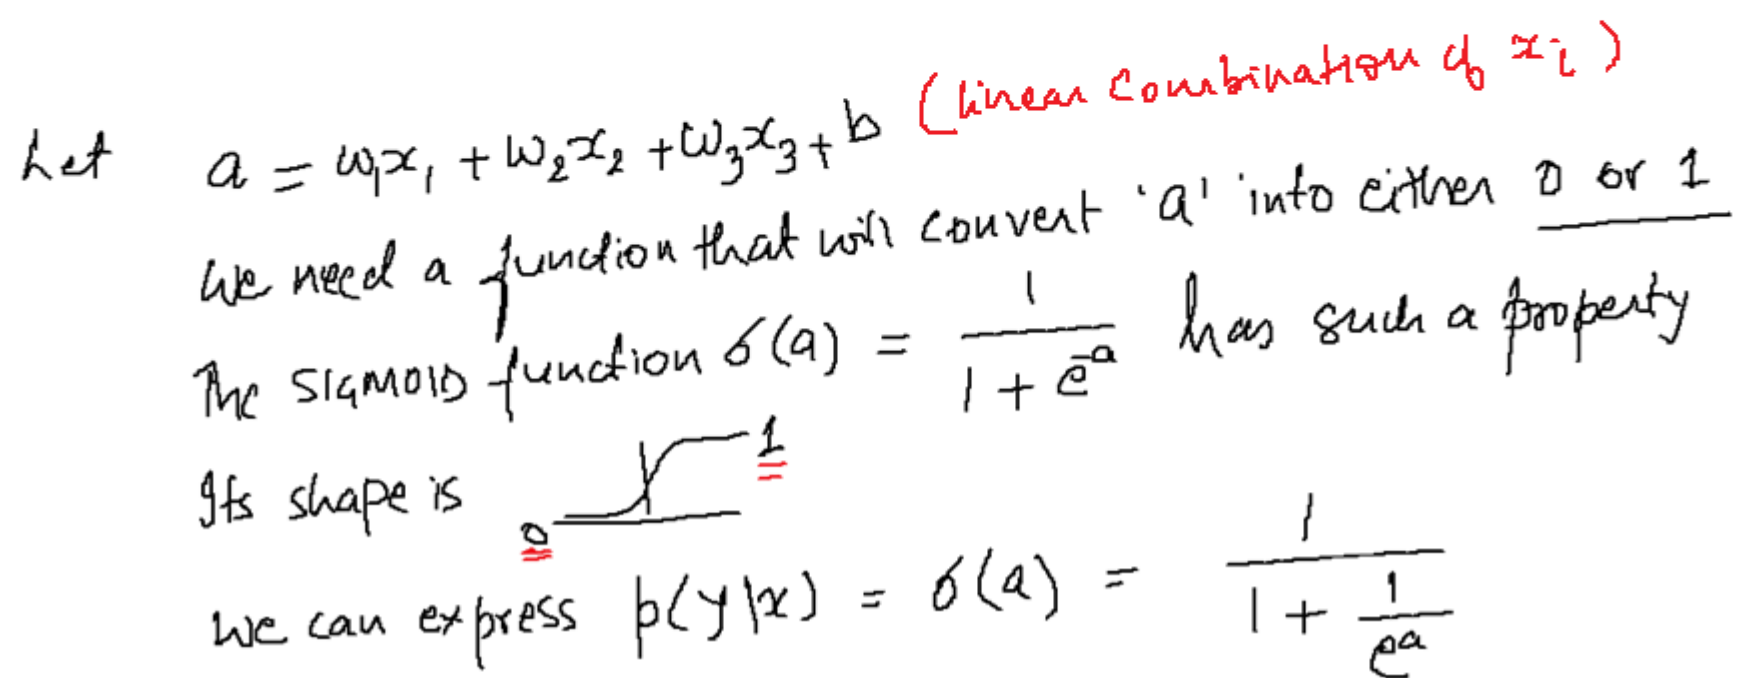 Let a = w₁x₁ + w₂x₂ + w₃x₃ + b (linear combination of xᵢ)
We need a function that will convert 'a' into either 0 or 1
The SIGMOID function σ(a) = 1 / (1 + e^-a) has such a property
Its shape is 0 1
We can express p(y|x) = σ(a) = 1 / (1 + 1/e^a)